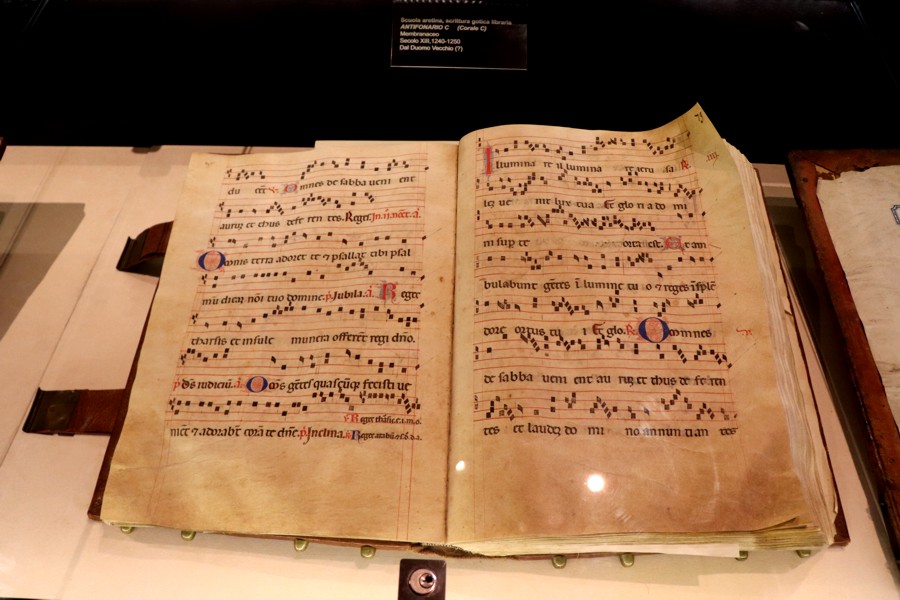 Scuola aretina, scrittura gotica libraria
ANTIFONARIO C (Corale C)
Membranaceo
Secolo XIII, 1240-1250
Dal Duomo Vecchio (?)
Omnes de sabba ueni ent
aurum et thus defe ren tes. Reges
Omnis terra adoret te et psallat tibi psal
mum dicat domine. Jubila. Reges
tharsis et insule munera offerēt regi dño.
gētes fecisti ue
niēt et adorabt corā te dñe. Inclina.
Illumina re illumina re iheru sa
lez ue nit lux tua Et glo ri a do mi
ni sup te orta est. Et am
bulabunt gētes i lumine tu o et reges i splē
dore ortus tu i Et glo. Oomnes
de sabba ueni ent au rum et thus de fe ren
tes et laudez do mi no annun tian tes